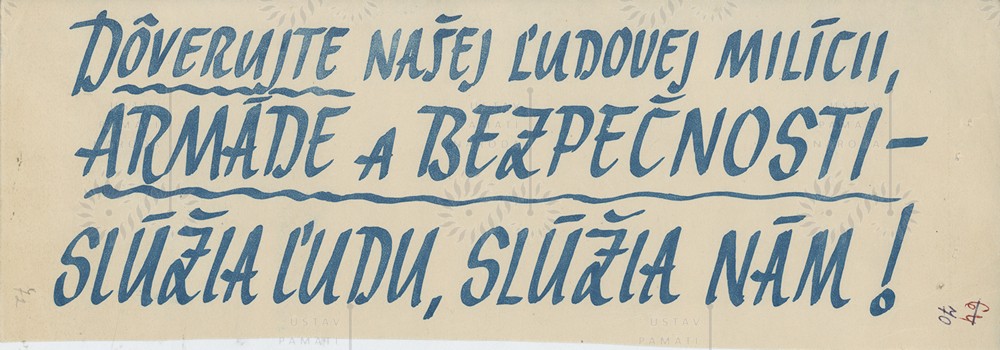 DÔVERUJTE NAŠEJ ĽUDOVEJ MILÍCII,
ARMÁDE A BEZPEČNOSTI–
SLÚŽIA ĽUDU, SLÚŽIA NÁM!
ÚSTAV
PAMÄTI
ÚSTAV
PAMÄTI
70